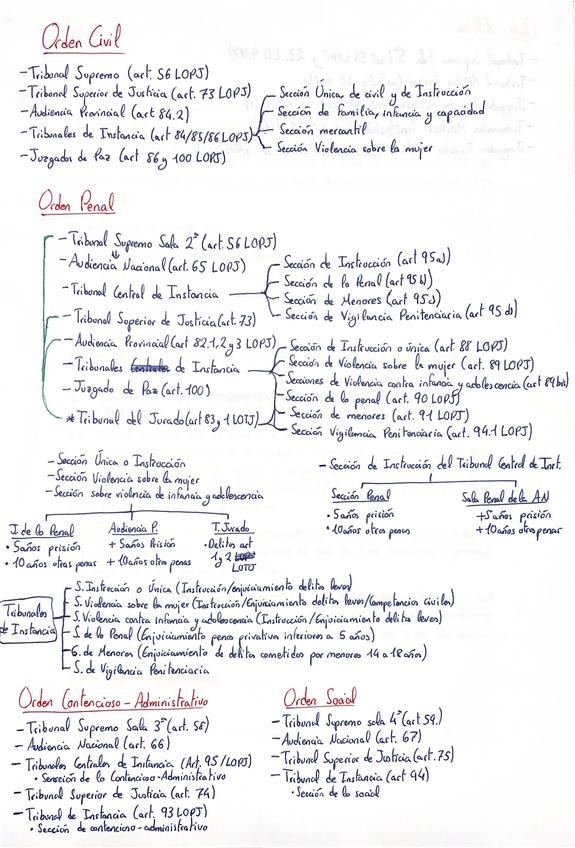 Orden Civil
- Tribunal Supremo (art. 56 LOPJ)
- Tribunal Superior de Justicia (art. 73 LOPJ)
- Audiencia Provincial (art 84.2)
- Tribunales de Instancia (art 84/85/86 LOPJ)
- Sección Única de civil y de Instrucción
- Sección de familia, infancia y capacidad
- Sección mercantil
- Sección Violencia sobre la mujer
- Juzgados de Paz (art 86 y 100 LOPJ)
Orden Penal
- Tribunal Supremo Sala 2ª (art. 56 LOPJ)
- Audiencia Nacional (art. 65 LOPJ)
- Tribunal Central de Instancia
- Sección de Instrucción (art 95 a)
- Sección de lo Penal (art 95 b)
- Sección de Menores (art 95 c)
- Sección de Vigilancia Penitenciaria (art 95 d)
- Tribunal Superior de Justicia (art. 73)
- Audiencia Provincial (art 82.1, 2 y 3 LOPJ)
- Tribunales de Instancia
- Juzgado de Paz (art. 100)
* Tribunal del Jurado (art 83 y 1 LOTJ)
- Sección de Instrucción o única (art. 88 LOPJ)
- Sección de Violencia sobre la mujer (art. 89 LOPJ)
- Secciones de Violencia contra infancia y adolescencia (art 89 bis)
- Sección de lo penal (art. 90 LOPJ)
- Sección de menores (art. 91 LOPJ)
- Sección Vigilancia Penitenciaria (art. 94.1 LOPJ)
- Sección Única o Instrucción
- Sección Violencia sobre la mujer
- Sección sobre violencia de infancia y adolescencia
J. de lo Penal
• 5 años prisión
• 10 años otras penas
Audiencia P.
+ 5 años Prisión
+ 10 años otras penas
T. Jurado
- Delitos art
1 y 2
LOTJ
- Sección de Instrucción del Tribunal Central de Inst.
Sección Penal
• 5 años prisión
• 10 años otras penas
Sala Penal de la AN
+ 5 años prisión
+ 10 años otras penas
Tribunales
de Instancia
- S. Instrucción o Única (Instrucción/enjuiciamiento delitos leves)
- S. Violencia sobre la mujer (Instrucción/Enjuiciamiento delitos leves/Competencias civiles)
- S. Violencia contra infancia y adolescencia (Instrucción/Enjuiciamiento delitos leves)
- S. de lo Penal (Enjuiciamiento penas privativas inferiores a 5 años)
- S. de Menores (Enjuiciamiento de delitos cometidos por menores 14 a 18 años)
- S. de Vigilancia Penitenciaria
Orden Contencioso-Administrativo
- Tribunal Supremo Sala 3ª (art. 58)
- Audiencia Nacional (art. 66)
- Tribunales Centrales de Instancia (Art. 95 LOPJ)
• Sección de lo Contencioso-Administrativo
- Tribunal Superior de Justicia (art. 74)
- Tribunal de Instancia (art. 93 LOPJ)
• Sección de contencioso-administrativo
Orden Social
- Tribunal Supremo sala 4ª (art 59.)
- Audiencia Nacional (art. 67)
- Tribunal Superior de Justicia (art. 75)
- Tribunal de Instancia (art 94)
• Sección de lo social